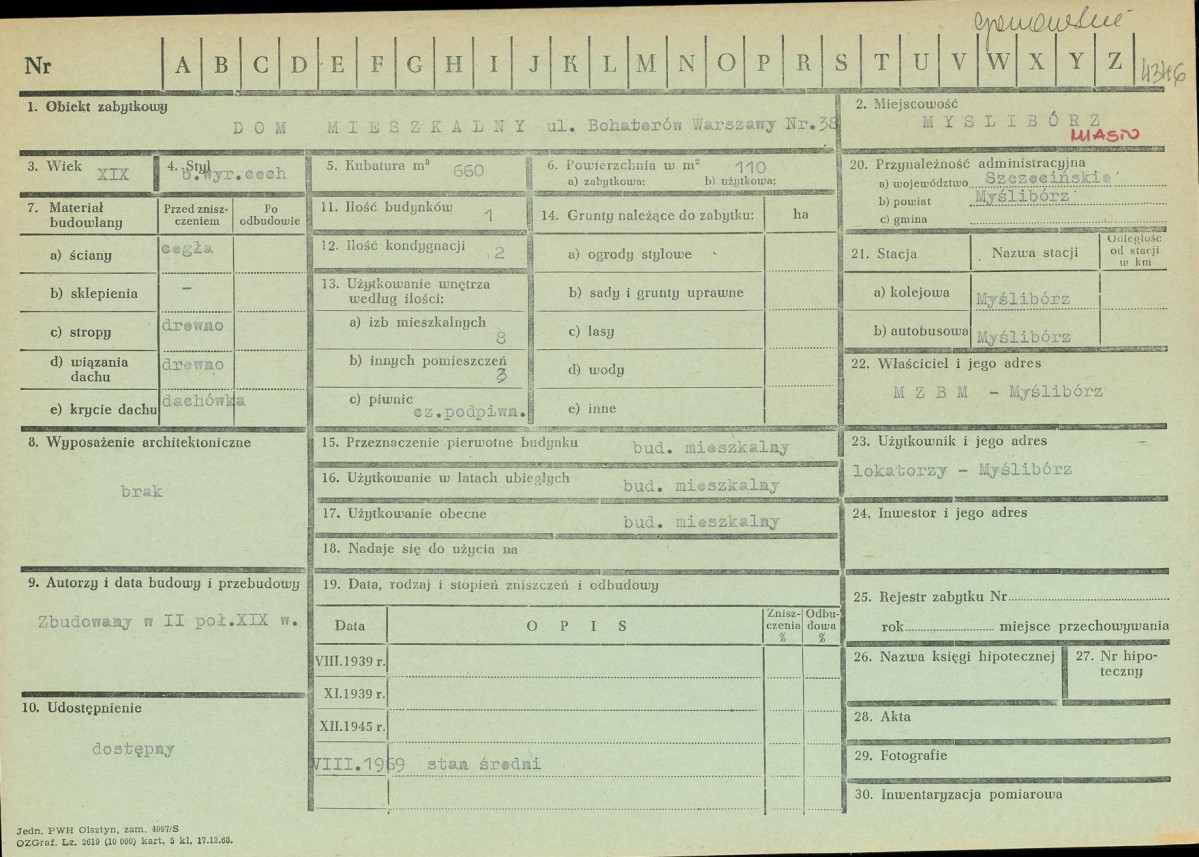 Nr A B C D E F G H I J K L M N O P R S T U V W X Y Z 4346
1. Obiekt zabytkowy
DOM MIESZKALNY ul. Bohaterów Warszawy Nr.38
2. Miejscowość
MYSLIBÓRZ
MIASTO
3. Wiek XIX
4. Styl
b.wyr.cech
5. Kubatura m³ 660
6. Powierzchnia w m² 110
a) zabytkowa: b) użytkowa:
20. Przynależność administracyjna
a) województwo Szczecińskie
b) powiat Myślibórz
c) gmina
7. Materiał budowlany
Przed zniszczeniem
Po odbudowie
a) ściany cegła
b) sklepienia –
c) stropy drewno
d) wiązania dachu drewno
e) krycie dachu dachówka
11. Ilość budynków 1
12. Ilość kondygnacji 2
13. Użytkowanie wnętrza według ilości:
a) izb mieszkalnych 8
b) innych pomieszczeń 3
c) piwnic cz.podpiwn.
14. Grunty należące do zabytku: ha
a) ogrody stylowe
b) sady i grunty uprawne
c) lasy
d) wody
e) inne
21. Stacja Nazwa stacji Odległość od stacji w km
a) kolejowa Myślibórz
b) autobusowa Myślibórz
22. Właściciel i jego adres
M Z B M – Myślibórz
8. Wyposażenie architektoniczne
brak
15. Przeznaczenie pierwotne budynku bud. mieszkalny
16. Użytkowanie w latach ubiegłych bud. mieszkalny
17. Użytkowanie obecne bud. mieszkalny
18. Nadaje się do użycia na
23. Użytkownik i jego adres
lokatorzy – Myślibórz
24. Inwestor i jego adres
9. Autorzy i data budowy i przebudowy
Zbudowany w II poł.XIX w.
19. Data, rodzaj i stopień zniszczeń i odbudowy
Data OPIS Zniszczenia % Odbudowa %
VIII.1939 r.
XI.1939 r.
XII.1945 r.
VIII.1969 stan średni
25. Rejestr zabytku Nr
rok miejsce przechowywania
26. Nazwa księgi hipotecznej
27. Nr hipoteczny
10. Udostępnienie
dostępny
28. Akta
29. Fotografie
30. Inwentaryzacja pomiarowa
Jedn. PWH Olsztyn, zam. 4097/S
OZGraf. Lz. 2619 (10 000) kart, 5 kl. 17.12.68.